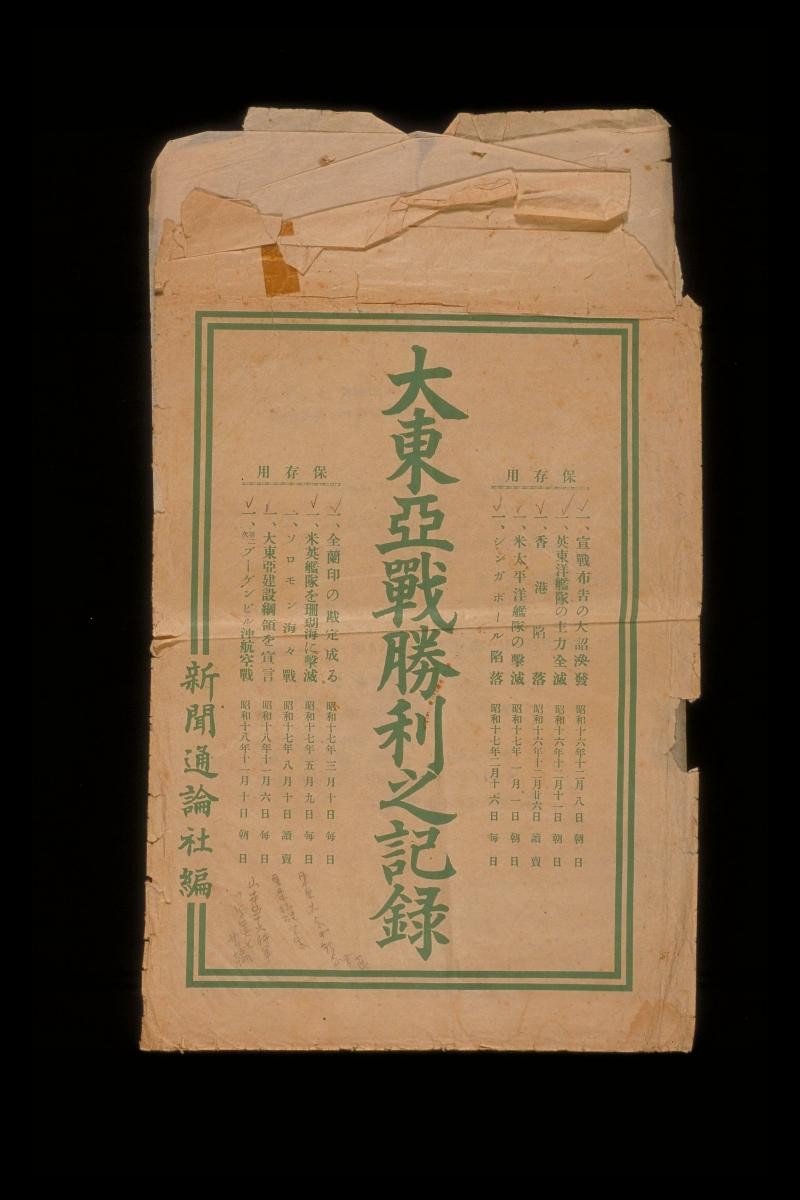 保存用
一、宣戰布告の大詔渙發 昭和十六年十二月八日 朝日
一、英東洋艦隊の主力全滅 昭和十六年十二月十一日 朝日
一、香港陷落 昭和十六年十二月廿六日 讀賣
一、米太平洋艦隊の擊滅 昭和十七年一月一日 朝日
一、シンガポール陷落 昭和十七年二月十六日 每日
大東亞戰勝利之記錄
保存用
一、全蘭印の戡定成る 昭和十七年三月十日 每日
一、米英艦隊を珊瑚海に擊滅 昭和十七年五月九日 每日
一、ソロモン海々戰 昭和十七年八月十日 讀賣
一、大東亞建設綱領を宣言 昭和十八年十一月六日 每日
一、第二次ブーゲンビル沖航空戰 昭和十八年十一月十日 朝日
新聞通論社編